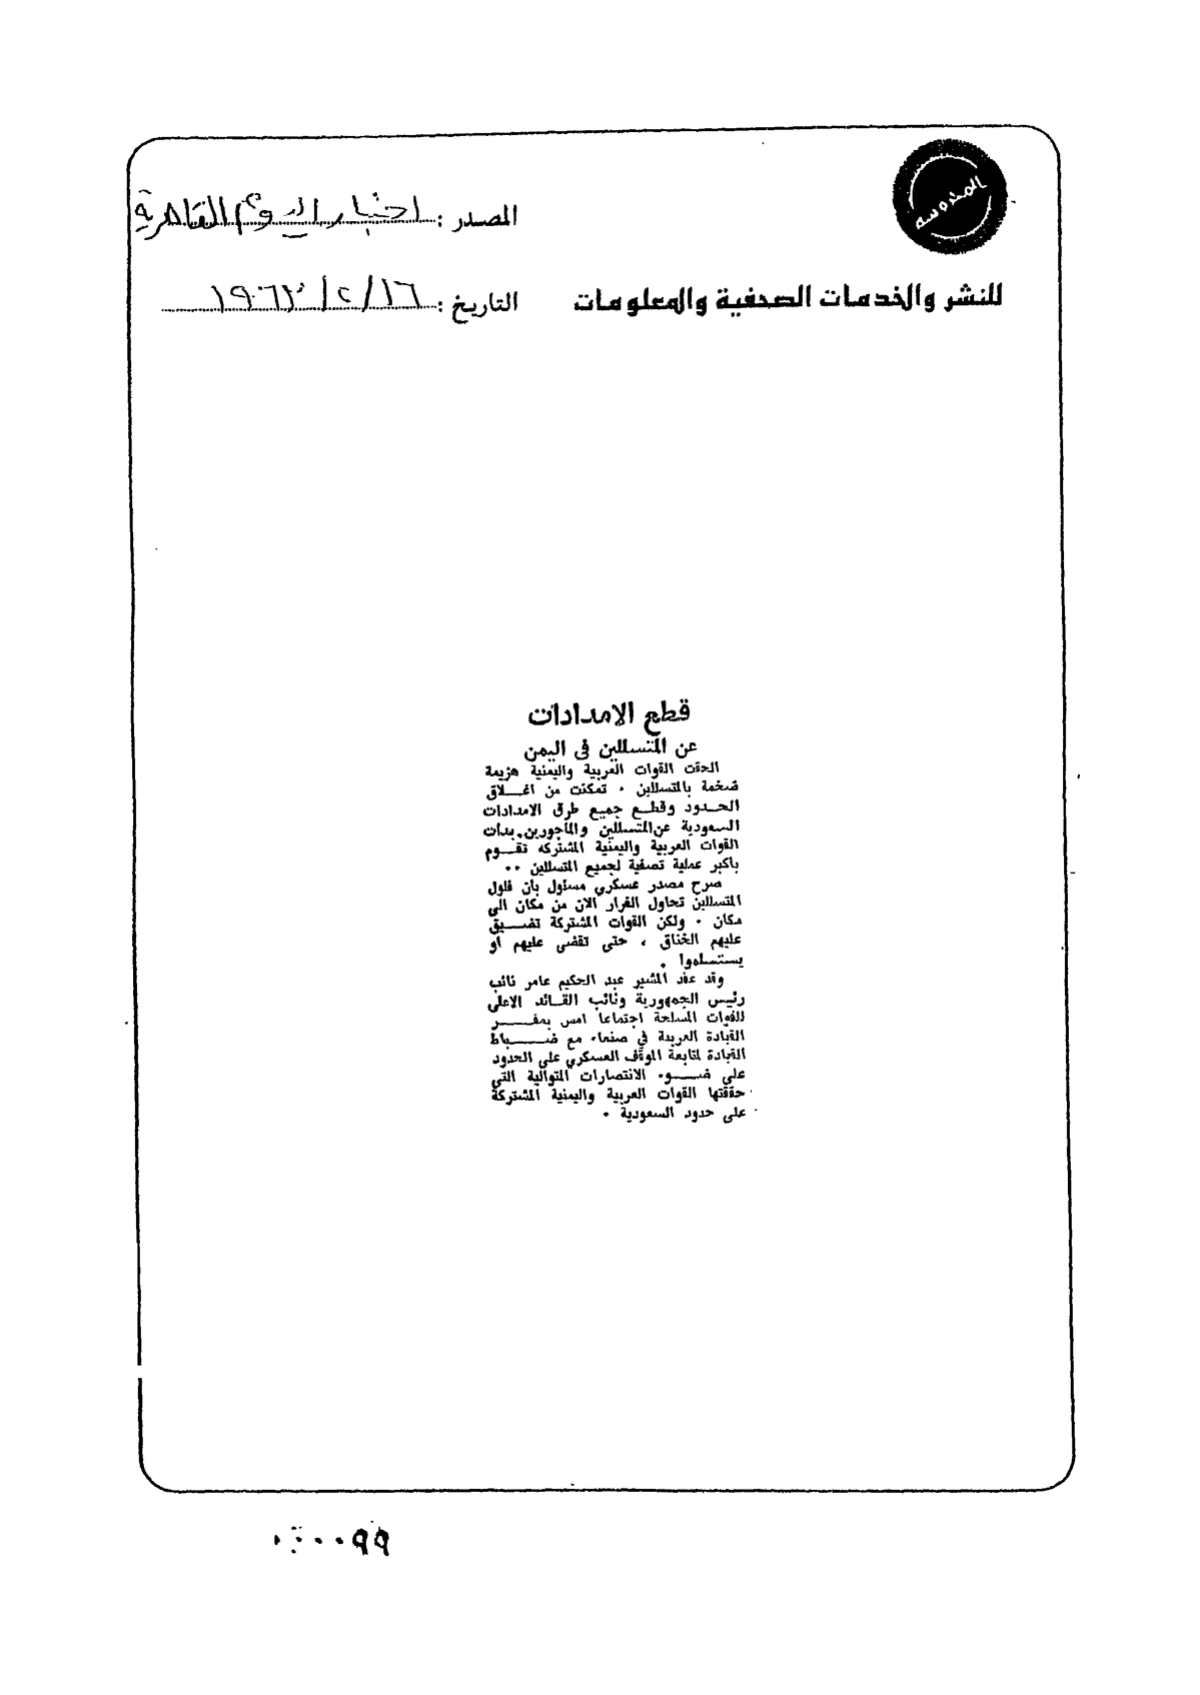 المحروسة
المصدر : اخبار اليوم القاهرية
للنشر والخدمات الصحفية والمعلومات
التاريخ : ١٦/٢/١٩٦٣
قطع الامدادات
عن المتسللين فى اليمن
الحقت القوات العربية واليمنية هزيمة
ضخمة بالمتسللين . تمكنت من اغلاق
الحدود وقطع جميع طرق الامدادات
السعودية عن المتسللين والمأجورين. بدأت
القوات العربية واليمنية المشتركة تقوم
باكبر عملية تصفية لجميع المتسللين ..
صرح مصدر عسكري مسئول بأن فلول
المتسللين تحاول الفرار الان من مكان الى
مكان . ولكن القوات المشتركة تضيق
عليهم الخناق ، حتى تقضى عليهم أو
يستسلموا .
وقد عقد المشير عبد الحكيم عامر نائب
رئيس الجمهورية ونائب القائد الاعلى
للقوات المسلحة اجتماعا امس بمقر
القيادة العربية في صنعاء مع ضباط
القيادة لمتابعة الموقف العسكري على الحدود
على ضوء الانتصارات المتوالية التى
حققتها القوات العربية واليمنية المشتركة
على حدود السعودية .